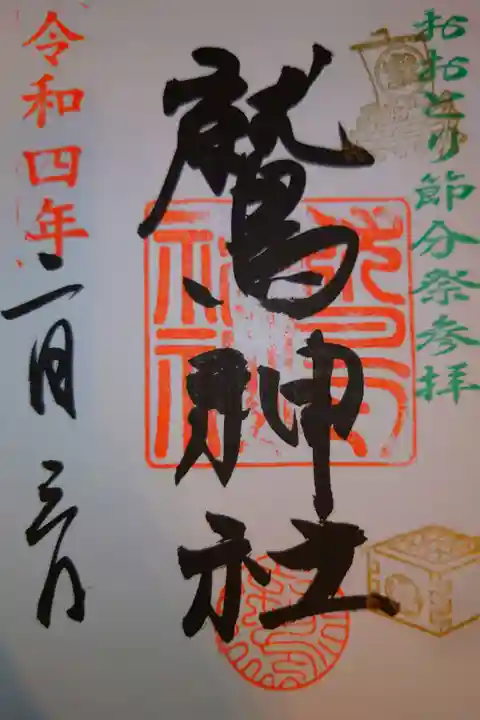 おおとり節分祭参拝
鷲神社
令和四年二月三日